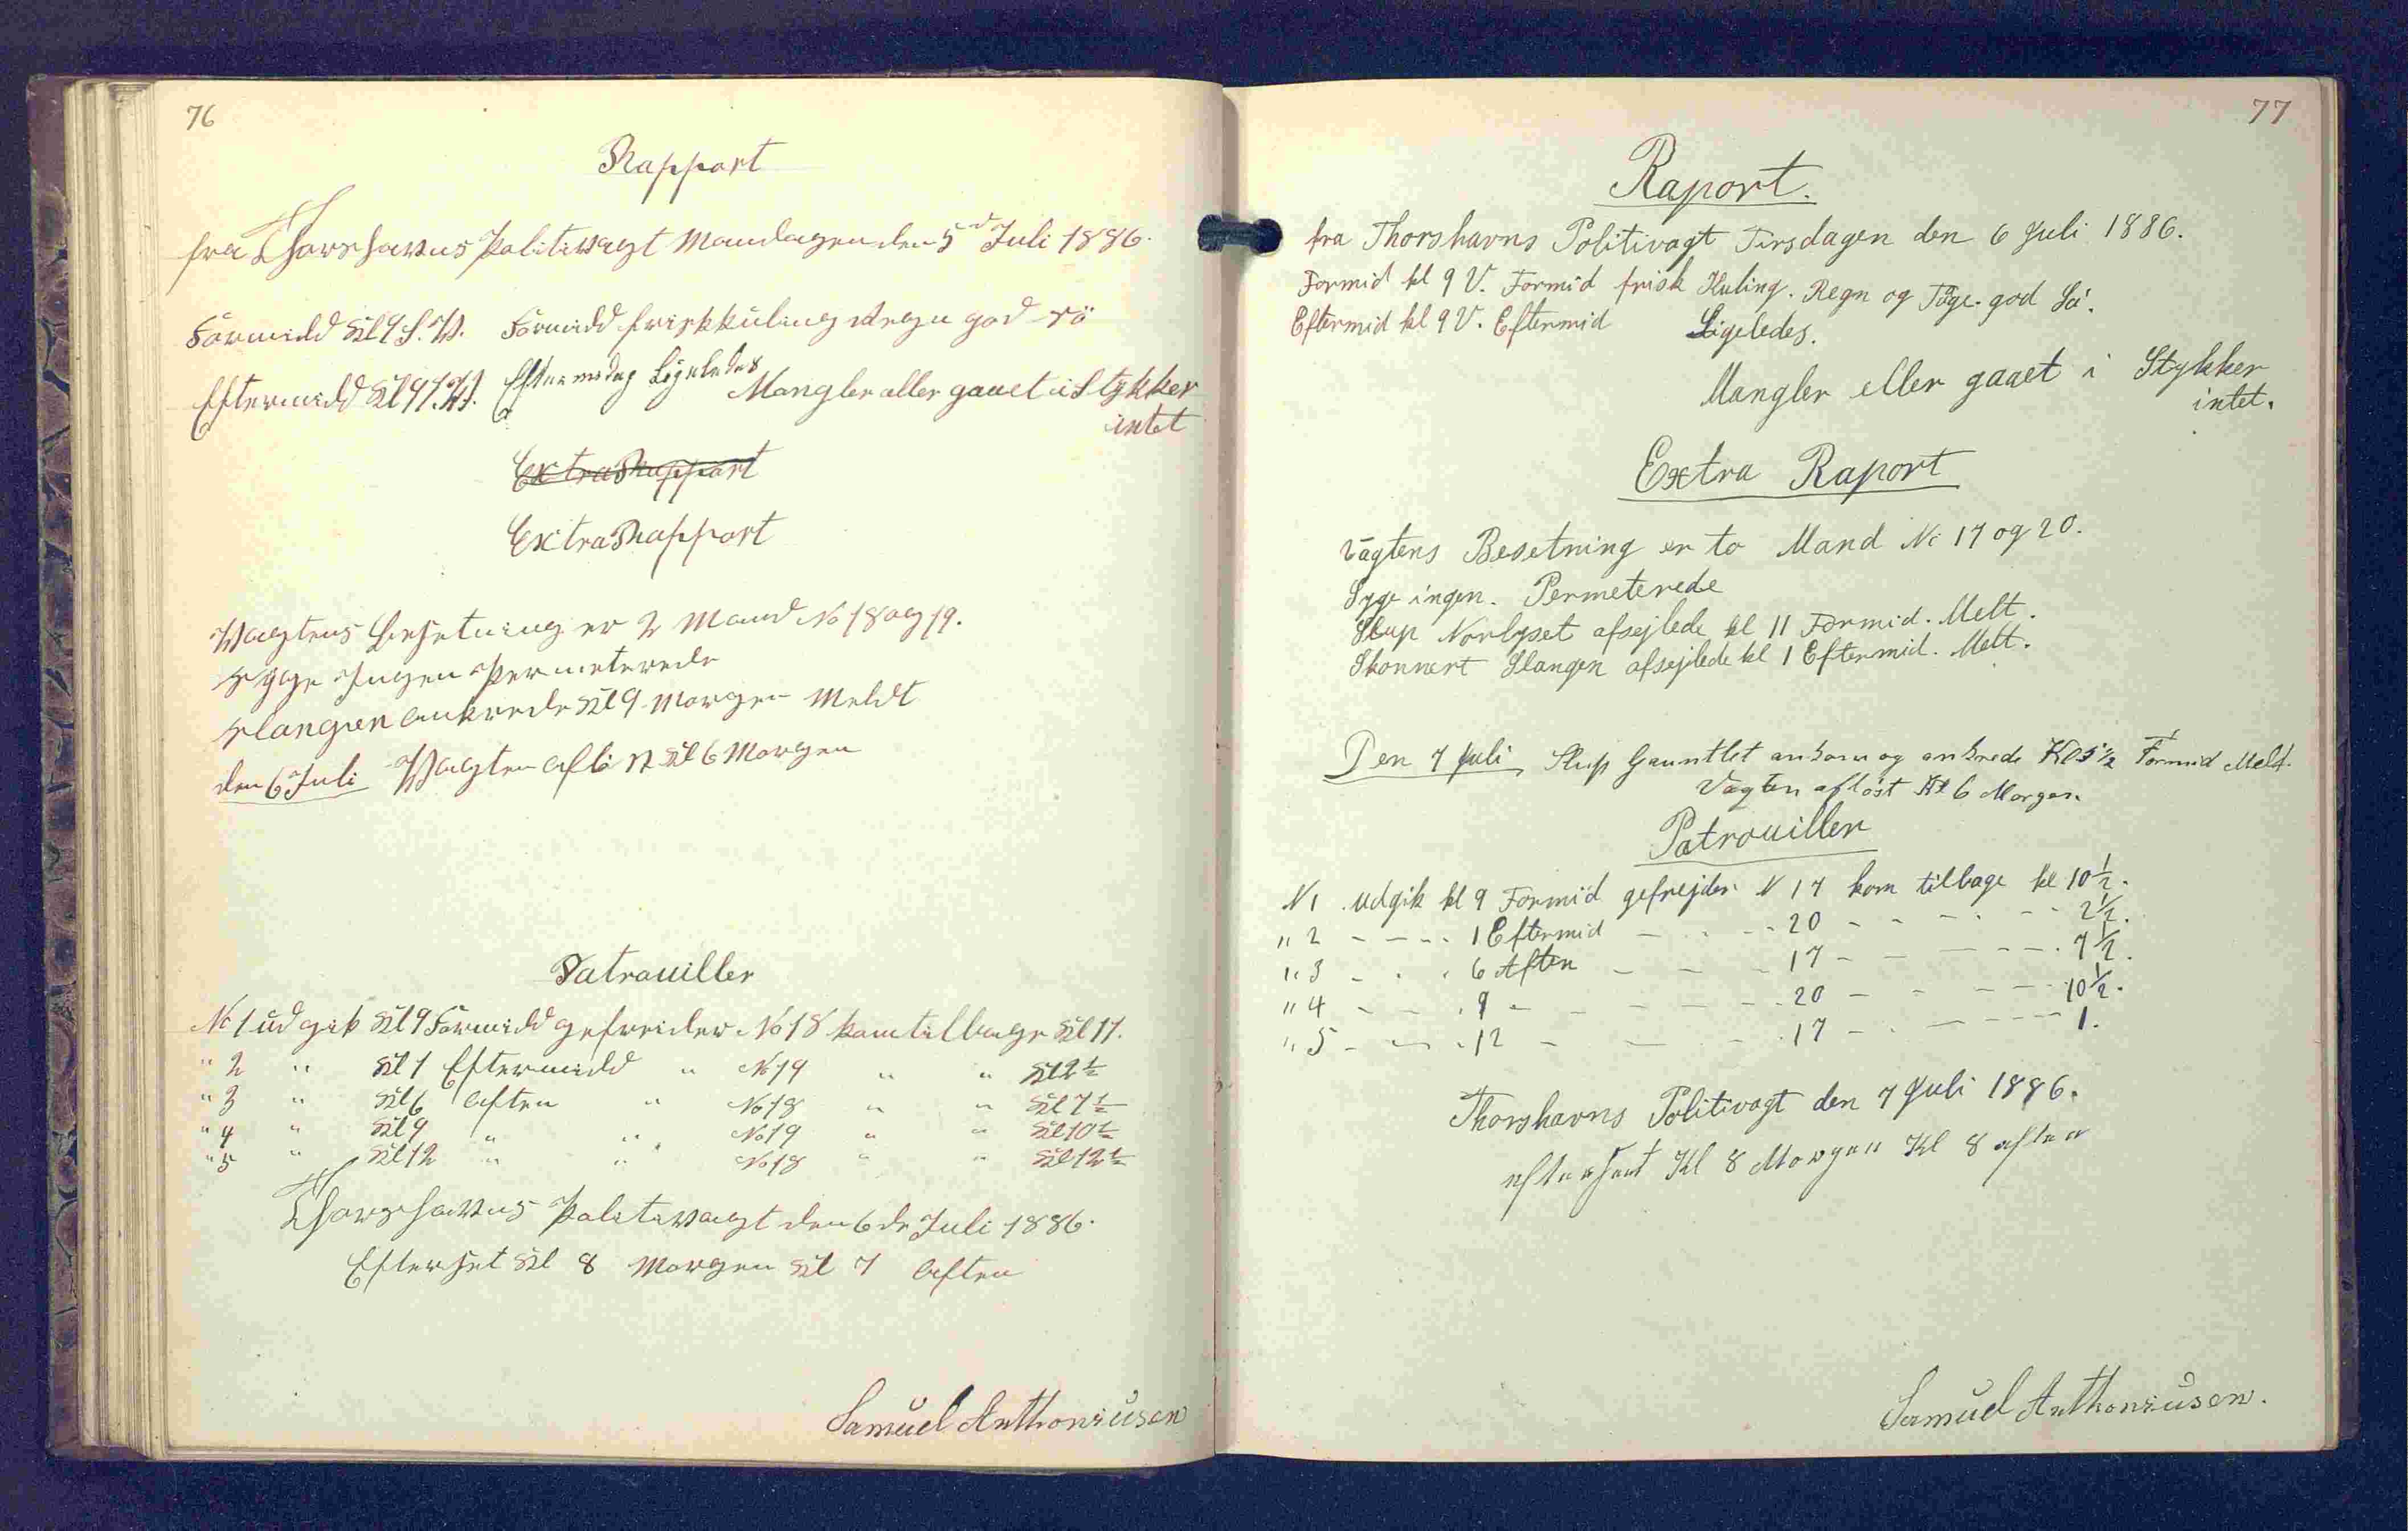 76
Rapport
fra Thorshavns Politivagt Mandagen den 5d Juli 1886.
Formidd Kl 9 S.V. Formidd frisk kuling Regn god Sö
Eftermidd Kl 9 S.V. Eftermedag Ligeledes
Mangler eller gaaet i Stykker
intet
Extra Rapport
Extra Rapport
Vagtens Besetning er 2 Mand No 18 og 19.
Syge Ingen Permeterede
Slangen ankrede Kl 9 Morgen Meldt
den 6 Juli Vagten aflöst Kl 6 Morgen
Patrouiller
No 1 udgik Kl 9 Formidd gefreider No 18 kom tilbage Kl 11.
" 2 " Kl 1 Eftermidd " No 19 " " Kl 2½
" 3 " Kl 6 Aften " No 18 " " Kl 7½
" 4 " Kl 9 " " No 19 " " Kl 10½
" 5 " Kl 12 " " No 18 " " Kl 12½
Thorshavns Politivagt den 6de Juli 1886.
Efterset Kl 8 Morgen Kl 7 Aften
Samuel Anthoniusen
77
Raport.
fra Thorshavns Politivagt Tirsdagen den 6 Juli 1886.
Formid kl 9 V. Formid frisk Kuling. Regn og Tåge. god Sö.
Eftermid kl 9 V. Eftermid Ligeledes.
Mangler eller gaaet i Stykker
intet.
Extra Raport
Vagtens Besetning er to Mand No 17 og 20.
Syge ingen. Permeterede
Slup Norlyset afsejlede kl 11 Formid. Melt.
Skonnert Slangen afsejlede kl 1 Eftermid. Melt.
Den 7 Juli Slup Gauntlet ankom og ankrede Kl 5½ Formid Meld.
Vagten aflöst Kl 6 Morgen
Patrouiller
N 1 udgik kl 9 Formid gefrejder N 17 kom tilbage kl 10½.
" 2 - - - - 1 Eftermid - - - 20 - - - - - 2½.
" 3 - - - 6 Aften - - - 17 - - - - - 7½.
" 4 - - - 9 - - - - - 20 - - - - - 10½.
" 5 - - - 12 - - - - 17 - - - - - 1.
Thorshavns Politivagt den 7 Juli 1886.
efterset Kl 8 Morgen Kl 8 aften
Samuel Anthoniusen.